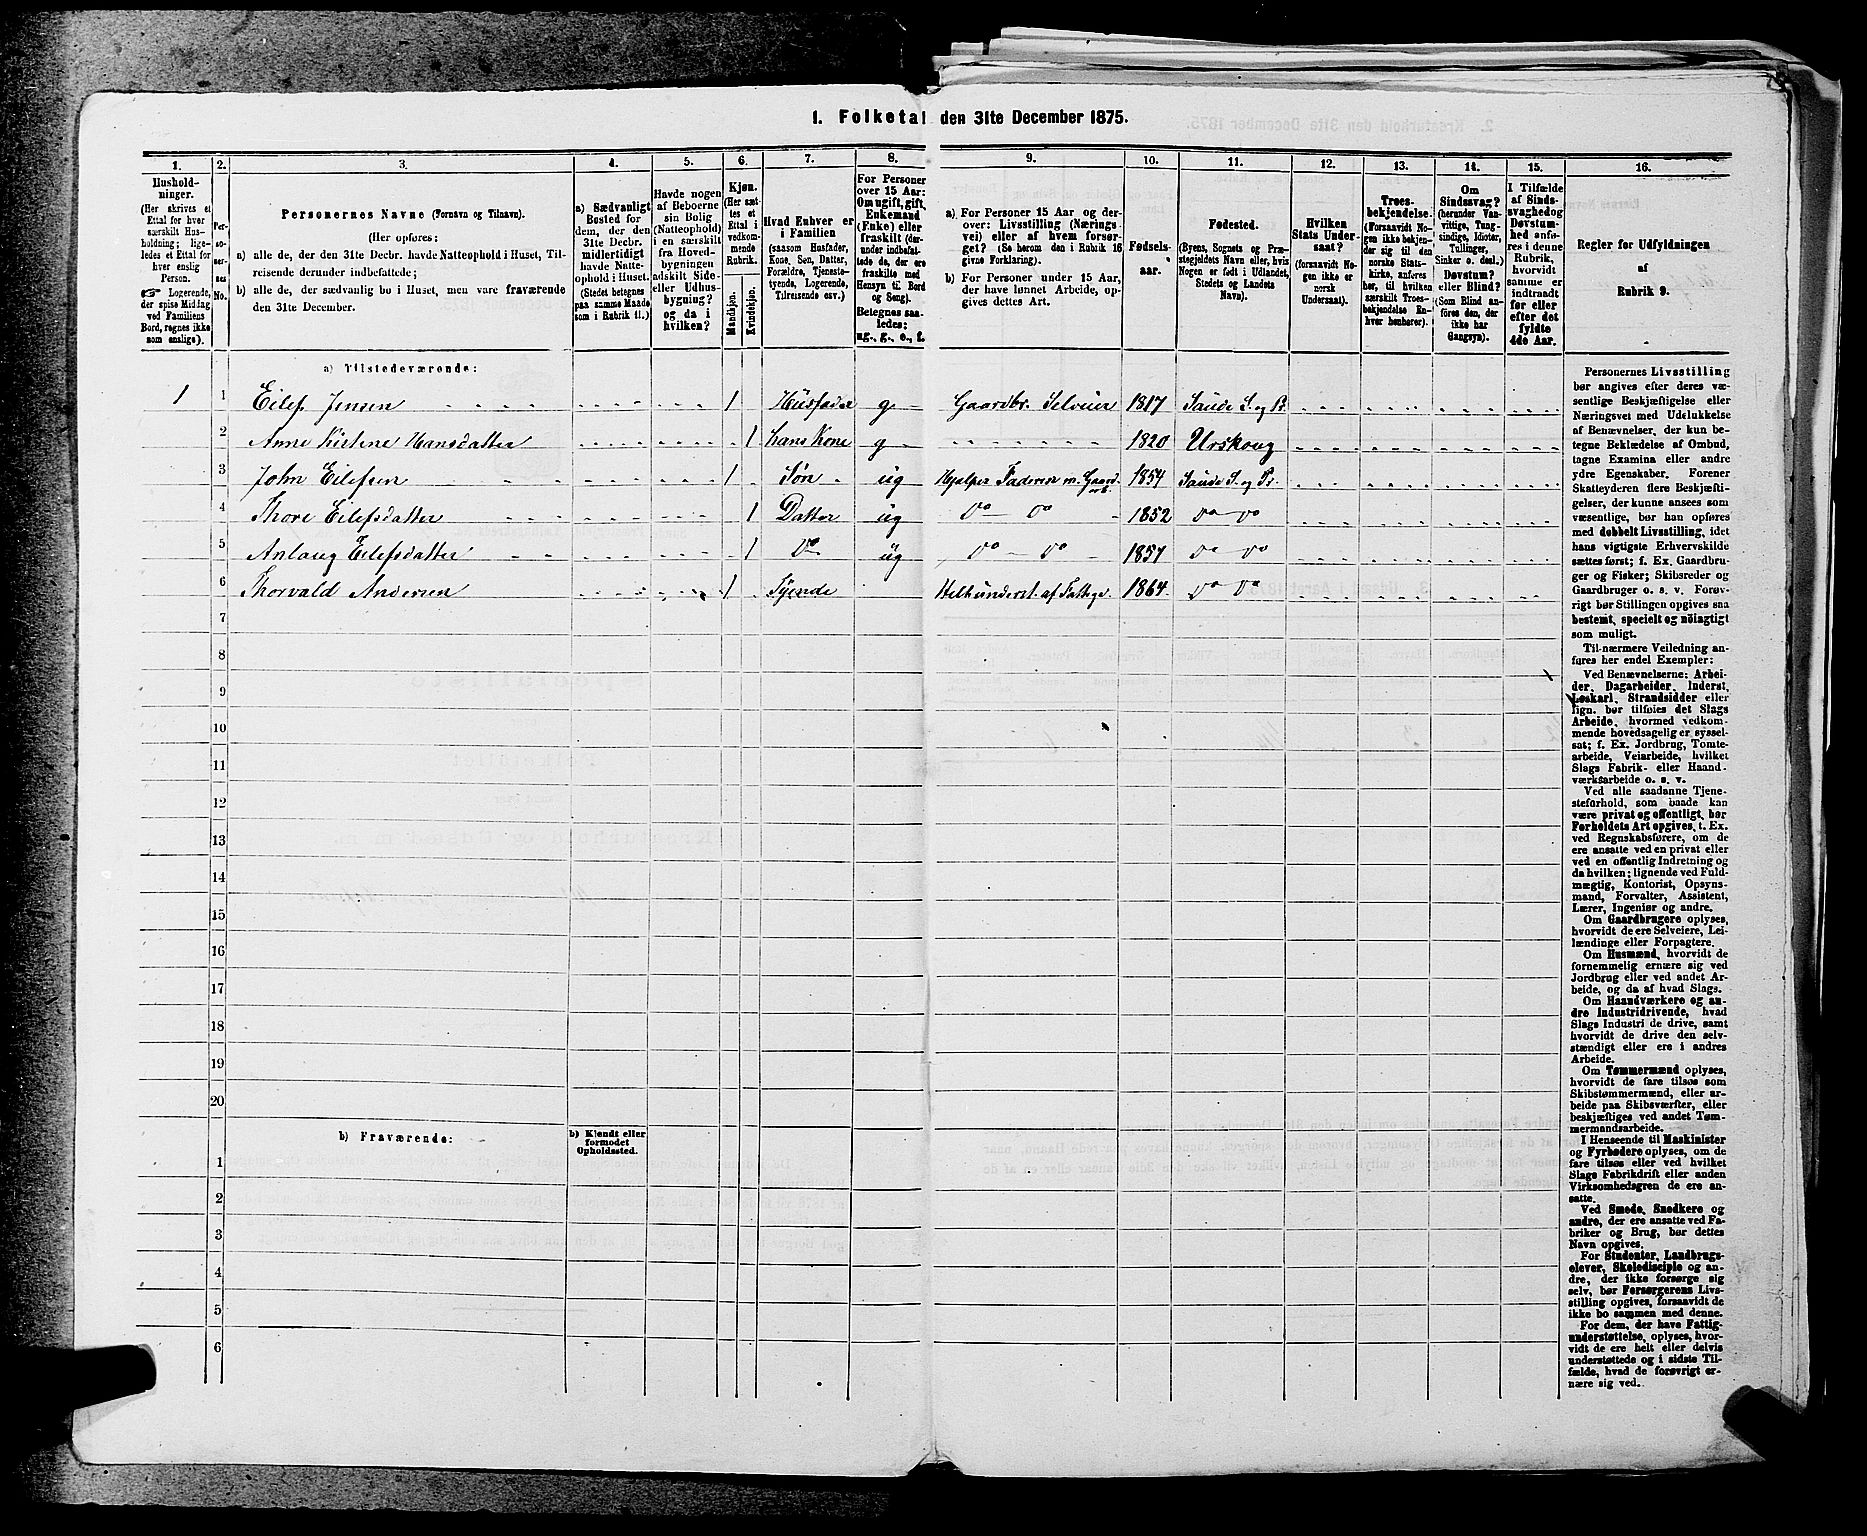 1. Folketal den 31te December 1875.
1. 2. 3. 4. 5. 6. 7. 8. 9. 10. 11. 12. 13. 14. 15. 16.
Hushold-
ninger.
(Her skrives et
Ettal for hver
særskilt Hus-
holdning; lige-
ledes et Ettal for
hver enslig
Person.
Logerende,
der spise Middag
ved Familiens
Bord, regnes ikke
som enslige).
Per-
so-
ner-
nes
No.
Personernes Navne (Fornavn og Tilnavn).
(Her opføres:
a) alle de, der den 31te Decbr. havde Natteophold i Huset, Til-
reisende derunder indbefattede;
b) alle de, der sædvanlig bo i Huset, men vare fraværende
den 31te December.
a) Sædvanligt
Bosted for
dem, der den
31te Decbr.
midlertidigt
havde Natte-
ophold i Huset.
(Stedet betegnes
paa samme Maade
som i Rubrik 11.)
Havde nogen
af Beboerne
sin Bolig
(Natteophold)
i en særskilt
fra Hoved-
bygningen
adskilt Side-
eller Udhus-
bygning?
og da i
hvilken?
Kjøn.
(Her sæt-
tes et
Ettal i
vedkom-
mende
Rubrik.
Mandkjøn.
Kvindekjøn.
Hvad Enhver er
i Familien
(saasom Husfader,
Kone, Søn, Datter,
Forældre, Tjeneste-
tyende, Logerende,
Tilreisende osv.)
For Personer
over 15 Aar:
Om ugift, gift,
Enkemand
(Enke) eller
fraskilt (der-
under indbefat-
tede de, der ere
fraskilte med
Hensyn til Bord
og Seng).
Betegnes saa-
ledes:
ug., g., e., f.
a) For Personer 15 Aar og der-
over: Livsstilling (Nærings-
vei) eller af hvem forsør-
get? (Se herom den i Rubrik 16
givne Forklaring).
b) For Personer under 15 Aar,
der have lønnet Arbeide, op-
gives dettes Art.
Fødsels-
aar.
Fødested.
(Byens, Sognets og Præ-
stegjeldets Navn eller, hvis
Nogen er født i Udlandet,
Stedets og Landets
Navn).
Hvilken
Stats Under-
saat?
(forsaavidt No-
gen ikke er
norsk
Undersaat).
Troes-
bekjendelse.
(Forsaavidt No-
gen ikke bekjen-
der sig til den
norske Stats-
kirke, anføres
her, til hvilken
særskilt Troes-
bekjendelse En-
hver henhører).
Om
Sindssvag?
(herunder Van-
vittige, Tung-
sindige, Idioter,
Tullinger,
Sinker o. desl.)
Døvstum?
eller Blind?
(Som Blind an-
føres den, der
ikke har
Gangsyn).
I Tilfælde
af Sinds-
svaghed og
Døvstum-
hed anfø-
res i denne
Rubrik,
hvorvidt
samme er
indtraadt
før eller
efter det
fyldte
4de Aar.
Regler for Udfyldningen
af
Rubrik 9.
a) Tilstedeværende:
1 1 Eilef Jensen 1 Husfader g Gaardbr. Selveier 1817 Saude S. og Pr.
2 Anne Kirstine Hansdatter 1 hans Kone g 1820 Urskoug
3 John Eilefsen 1 Søn ug Hjelper Faderen m. Gaardsarb. 1854 Saude S. og Pr.
4 Thore Eilefsdatter 1 Datter ug Do Do 1852 Do Do
5 Anlaug Eilefsdatter 1 Do ug Do Do 1857 Do Do
6 Thorvald Andersen 1 Tyende Helt underst. af Fattigv. 1864 Do Do
7
8
9
10
11
12
13
14
15
16
17
18
19
20
b) Fraværende:
b) Kjendt eller
formodet
Opholdssted.
1
2
3
4
5
6
Personernes Livsstilling
bør angives efter deres væ-
sentlige Beskjæftigelse eller
Næringsvei med Udelukkelse
af Benævnelser, der kun be-
tegne Beklædelse af Ombud,
tagne Examina eller andre
ydre Egenskaber. Forener
Skatteyderen flere Beskjæfti-
gelser, der kunne ansees som
væsentlige, bør han opføres
med dobbelt Livsstilling, idet
hans vigtigste Erhvervskilde
sættes først; f. Ex. Gaardbru-
ger og Fisker; Skibsreder og
Gaardbruger o. s. v. Forøv-
rigt bør Stillingen opgives saa
bestemt, specielt og nøiagtigt
som muligt.
Til nærmere Veiledning an-
føres her endel Exempler:
Ved Benævnelserne: Arbei-
der, Dagarbeider, Inderst,
Løskarl, Strandsidder eller
lign. bør tilføies det Slags
Arbeide, hvormed vedkom-
mende hovedsagelig er syssel-
sat; f. Ex. Jordbrug, Tomte-
arbeide, Veiarbeide, hvilket
Slags Fabrik- eller Haand-
værksarbeide o. s. v.
Ved alle saadanne Tjene-
steforhold, som baade kan
være privat og offentligt, bør
Forholdets Art opgives, t. Ex.
ved Regnskabsførere, om de
ere ansatte ved en privat eller
ved en offentlig Indretning og
da hvilken; lignende ved Fuld-
mægtig, Kontorist, Opsyns-
mand, Forvalter, Assistent,
Lærer, Ingeniør og andre.
Om Gaardbrugere oplyses,
hvorvidt de ere Selveiere, Lei-
lændinge eller Forpagtere.
Om Husmænd, hvorvidt de
fornemmelig ernære sig ved
Jordbrug eller ved andet Ar-
beide, og da af hvad Slags.
Om Haandværkere og an-
dre Industridrivende, hvad
Slags Industri de drive, samt
hvorvidt de drive den selv-
stændigt eller ere i andres
Arbeide.
Om Tømmermænd oplyses,
hvorvidt de fare tilsøs som
Skibstømmermænd, eller ar-
beide paa Skibsværfter, eller
beskjæftiges ved andet Tøm-
mermandsarbeide.
I Henseende til Maskinister
og Fyrbødere oplyses, om de
fare tilsøs eller ved hvilket
Slags Fabrikdrift eller anden
Virksomhedsgren de ere an-
satte.
Ved Smede, Snedkere og
andre, der ere ansatte ved Fa-
briker og Brug, bør dettes
Navn opgives.
For Studenter, Landbrugs-
elever, Skoledisciple og an-
dre, der ikke forsørge sig
selv, bør Forsørgerens Livs-
stilling opgives, forsaavidt de
ikke bo sammen med denne.
For dem, der have Fattig-
understøttelse, oplyses, hvor-
vidt de ere helt eller delvis
understøttede og i sidste Til-
fælde, hvad de forøvrigt er-
nære sig ved.